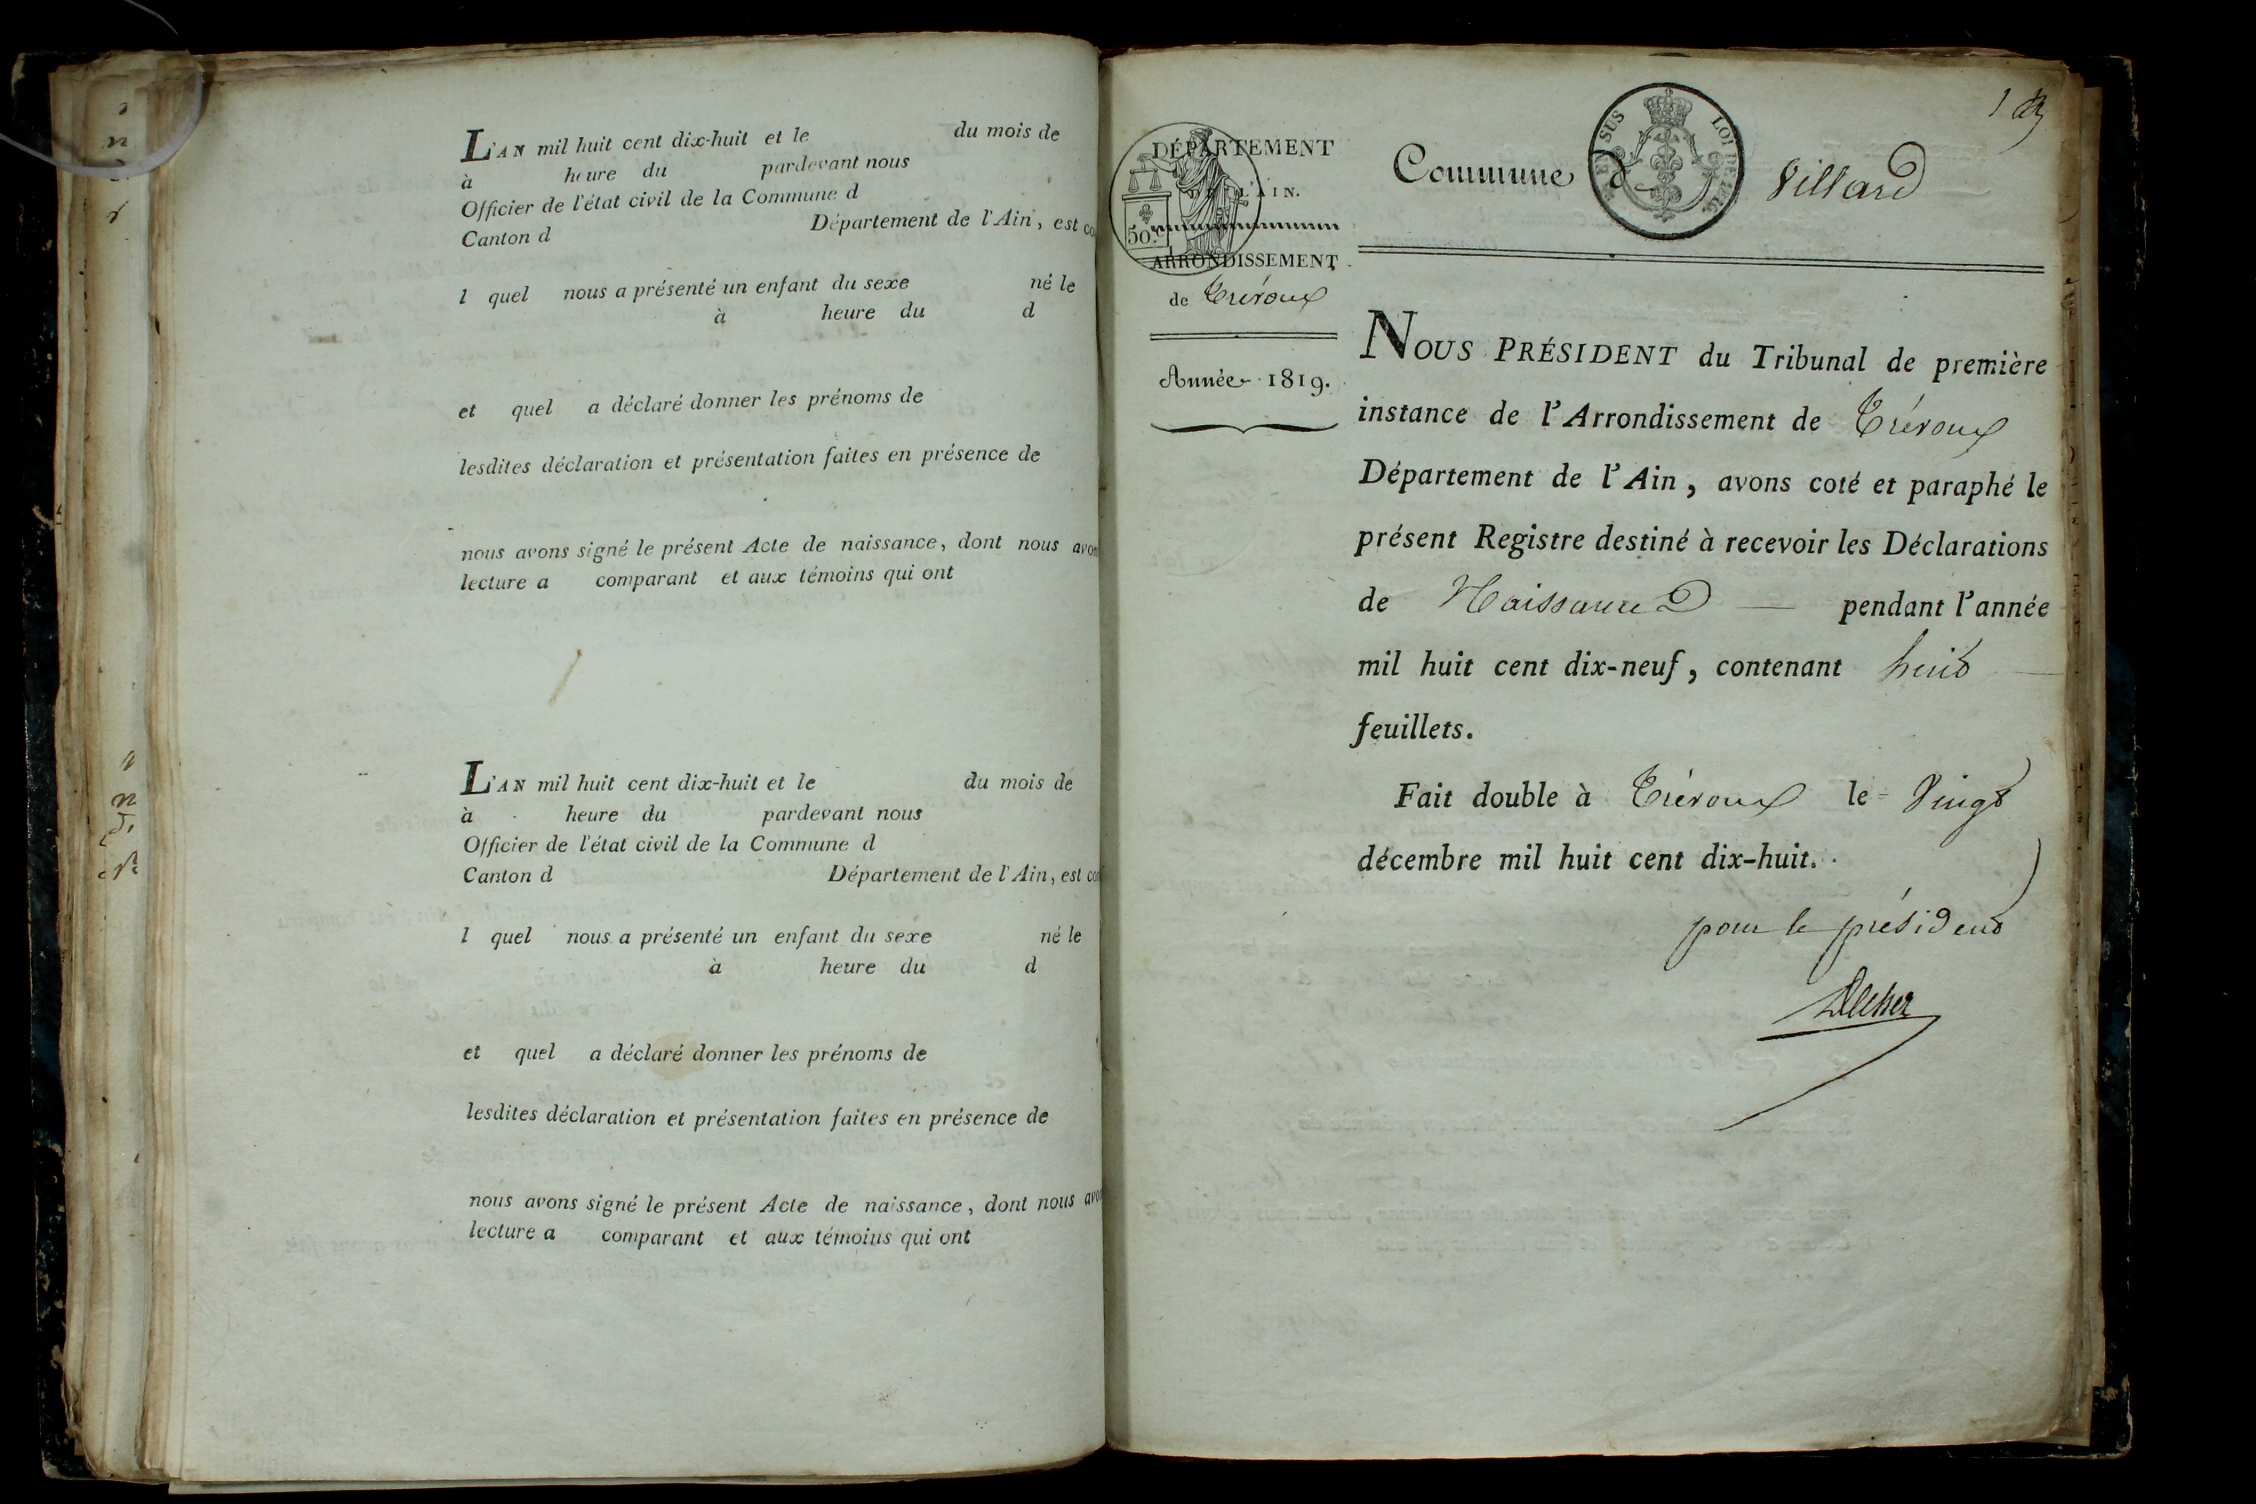 L'AN mil huit cent dix-huit et le du mois de
à heure du pardevant nous
Officier de l'état civil de la Commune d
Canton d Département de l'Ain, est co
l quel nous a présenté un enfant du sexe né le
à heure du d
et quel a déclaré donner les prénoms de
lesdites déclaration et présentation faites en présence de
nous avons signé le présent Acte de naissance, dont nous avon
lecture a comparant et aux témoins qui ont
L'AN mil huit cent dix-huit et le du mois de
à heure du pardevant nous
Officier de l'état civil de la Commune d
Canton d Département de l'Ain, est co
l quel nous a présenté un enfant du sexe né le
à heure du d
et quel a déclaré donner les prénoms de
lesdites déclaration et présentation faites en présence de
nous avons signé le présent Acte de naissance, dont nous avo
lecture a comparant et aux témoins qui ont
1
DÉPARTEMENT
DE L'AIN.
50.c
ARRONDISSEMENT
de Trévoux
Année 1819.
EN SUS LOI DE 1816
Commune d Villard
NOUS PRÉSIDENT du Tribunal de première
instance de l'Arrondissement de Trévoux
Département de l'Ain, avons coté et paraphé le
présent Registre destiné à recevoir les Déclarations
de Naissance pendant l'année
mil huit cent dix-neuf, contenant huit
feuillets.
Fait double à Trévoux le Vingt
décembre mil huit cent dix-huit.
pour le président